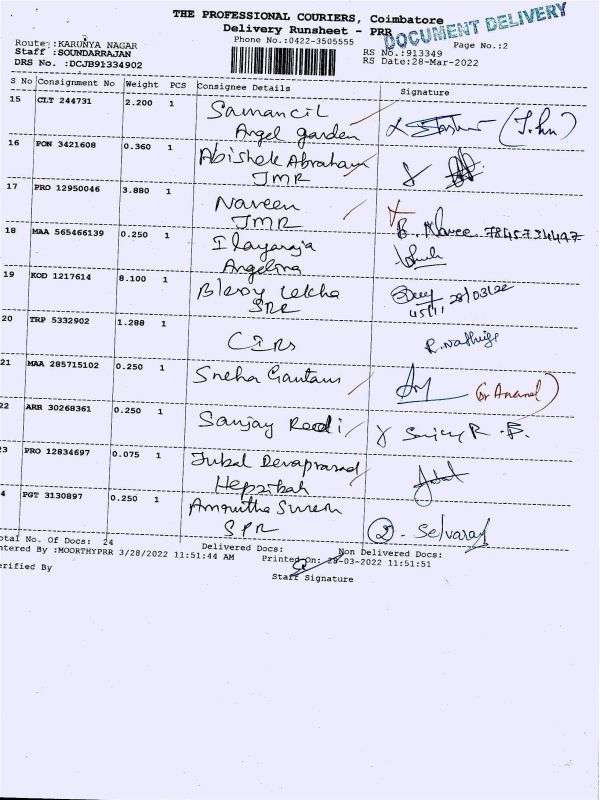 THE PROFESSIONAL COURIERS, Coimbatore
Delivery Runsheet - PRR
DOCUMENT DELIVERY
Phone No.:0422-3505555
Page No.:2
Route :KARUNYA NAGAR
Staff :SOUNDARRAJAN
DRS No. :DCJB91334902
RS No.:913349
RS Date:28-Mar-2022
S No Consignment No Weight PCS Consignee Details Signature
15 CLT 244731 2.200 1 Samancil
Angel garden (John)
16 PON 3421608 0.360 1 Abishek Abraham
JMR
17 PRO 12950046 3.880 1 Naveen
JMR B. Navee. 7845734497
18 MAA 565466139 0.250 1 Ilayaraja
Angelina
19 KOD 1217614 8.100 1 Blessy Lekha
SRR 28/03/22
20 TRP 5332902 1.288 1
CIRs
21 MAA 285715102 0.250 1 Sneha Gautam (or Anand)
22 ARR 30268361 0.250 1 Sanjay
23 PRO 12834697 0.075 1 Jubal Devaprasad
Hepzibah
4 PGT 3130897 0.250 1 Amrutha Suresh
SPR 2. Selvaraj
otal No. Of Docs: 24 Delivered Docs: Non Delivered Docs:
ntered By :MOORTHYPRR 3/28/2022 11:51:44 AM Printed On: 28-03-2022 11:51:51
erified By
Staff Signature